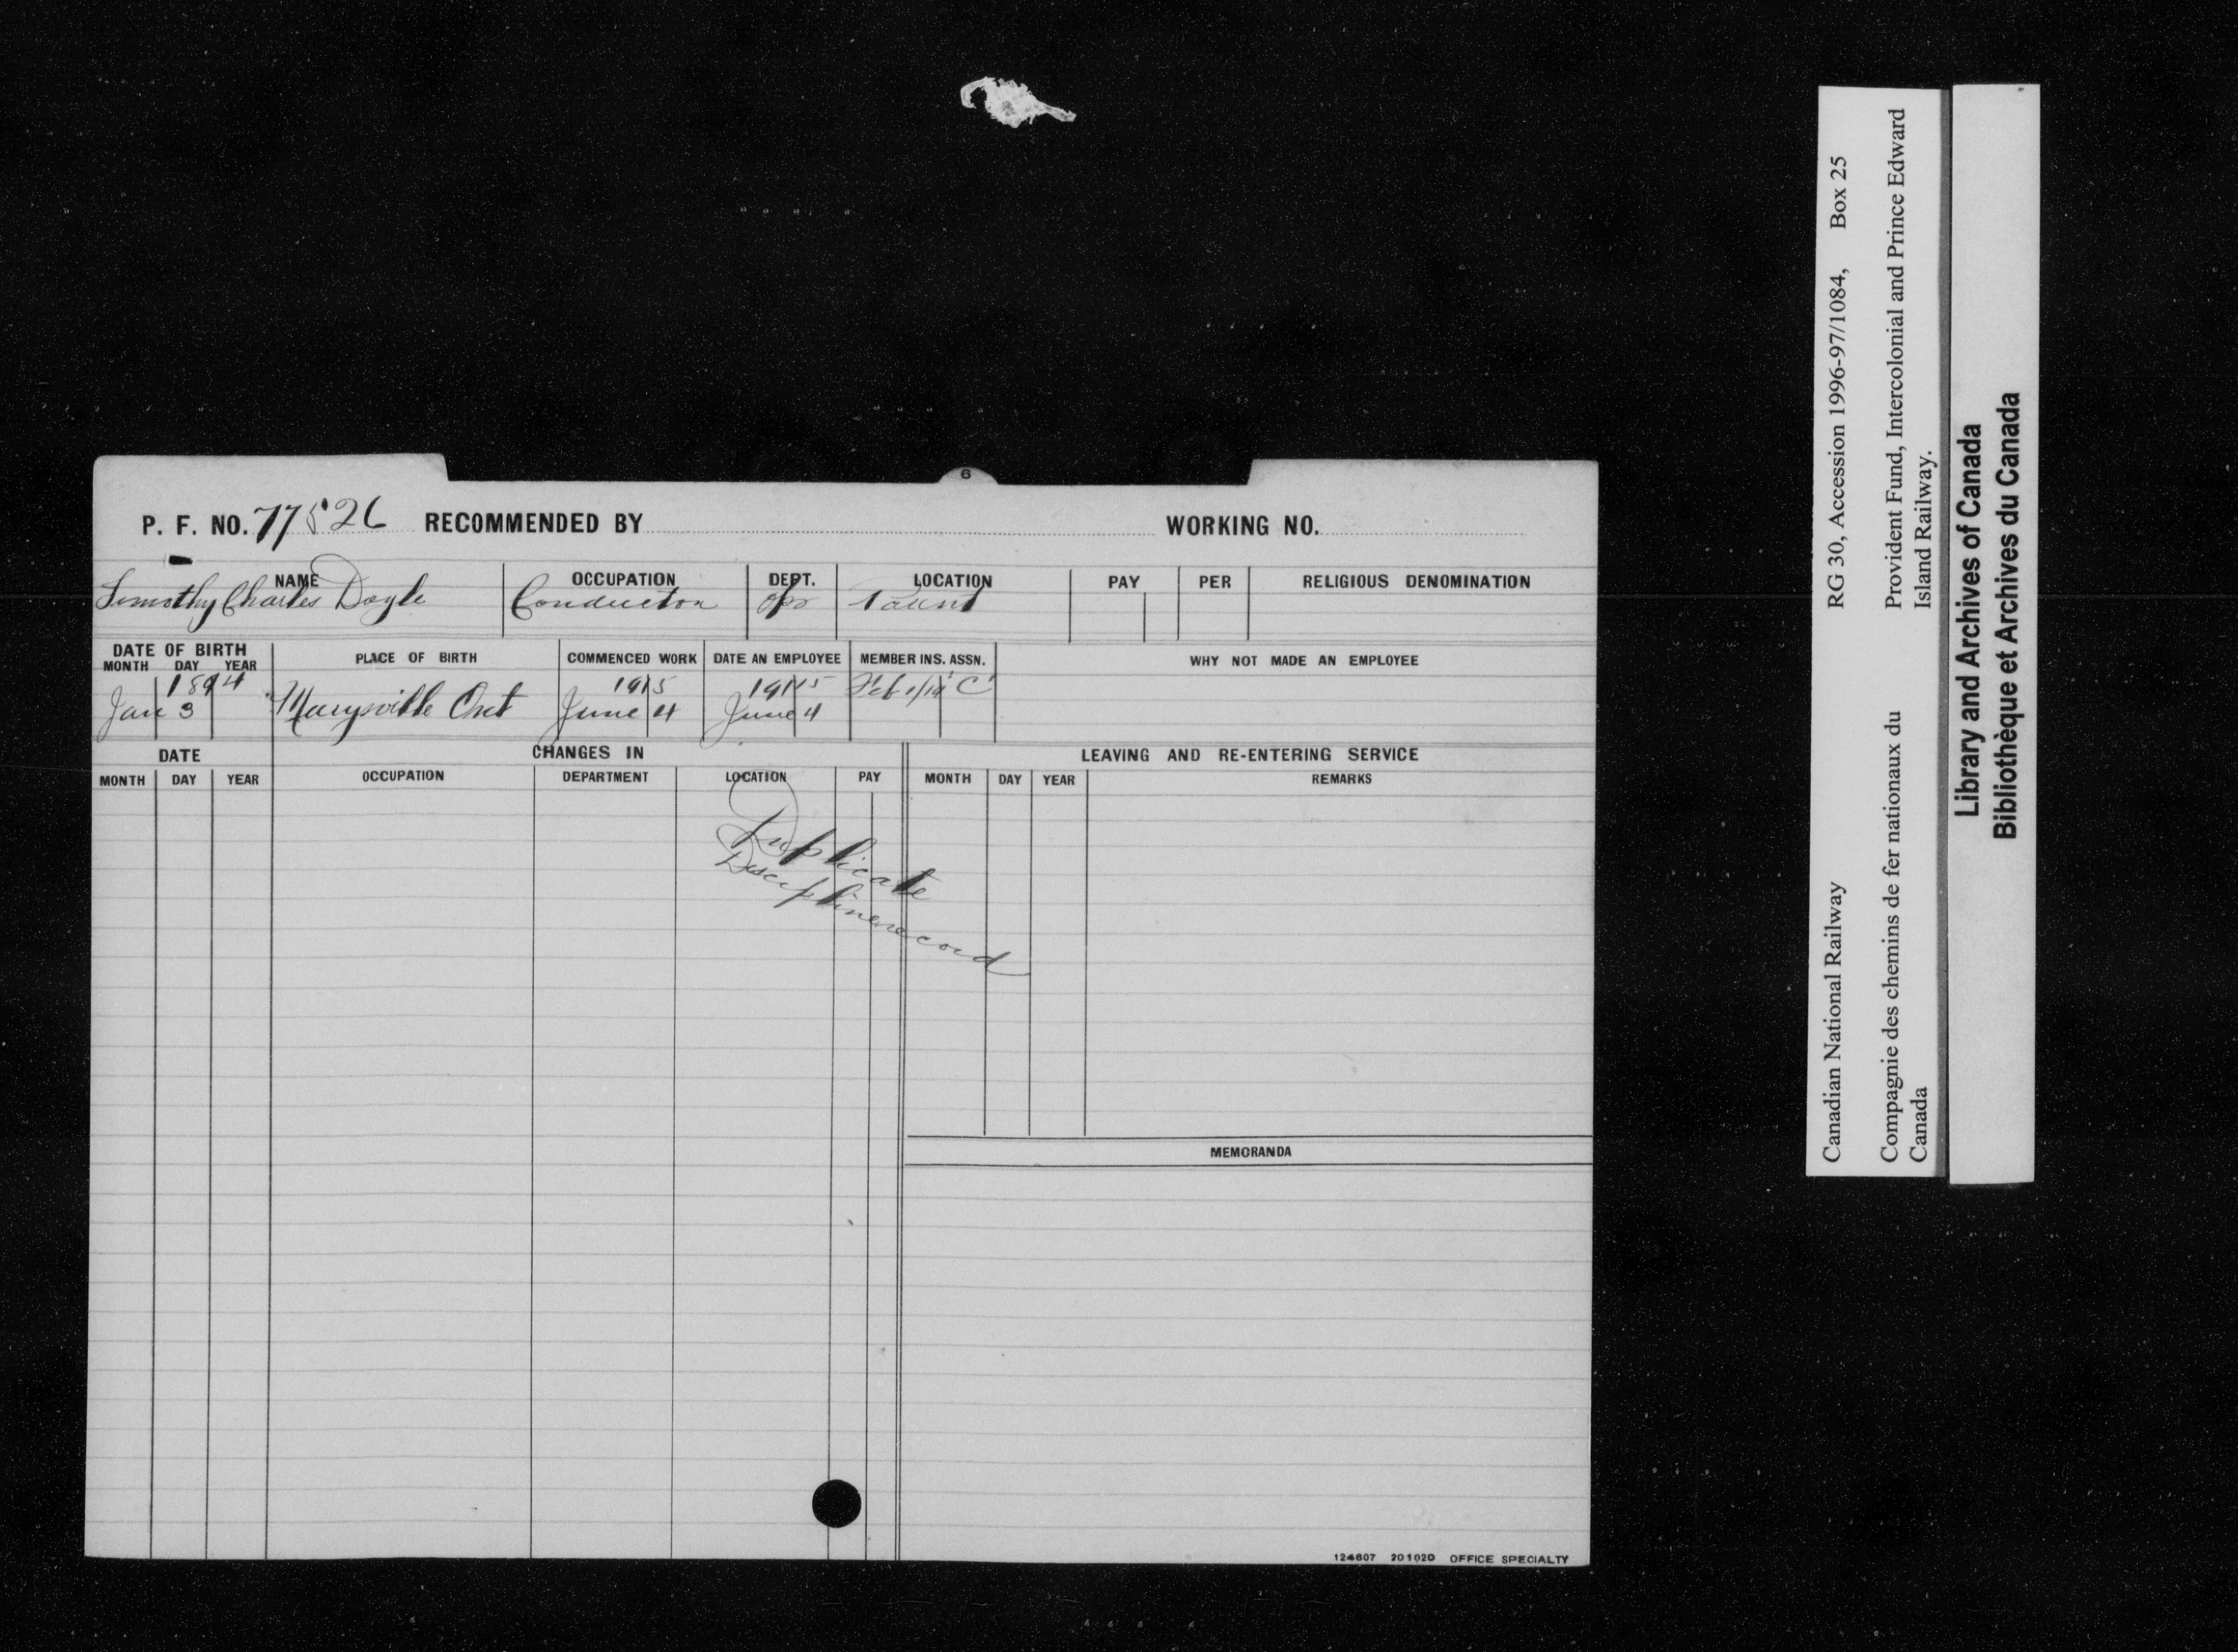 6
P. F. NO. 77526 RECOMMENDED BY WORKING NO.
NAME OCCUPATION DEPT. LOCATION PAY PER RELIGIOUS DENOMINATION
Timothy Charles Doyle Conductor
DATE OF BIRTH PLACE OF BIRTH COMMENCED WORK DATE AN EMPLOYEE MEMBER INS. ASSN. WHY NOT MADE AN EMPLOYEE
MONTH DAY YEAR
1894 1915 1915 Feb 1/19 "C"
Jan 3 Marysville Ont June 4 June 4
DATE CHANGES IN LEAVING AND RE-ENTERING SERVICE
MONTH DAY YEAR OCCUPATION DEPARTMENT LOCATION PAY MONTH DAY YEAR REMARKS
Duplicate
Discipline record
MEMORANDA
124607 201020 OFFICE SPECIALTY
Canadian National Railway RG 30, Accession 1996-97/1084, Box 25
Compagnie des chemins de fer nationaux du Provident Fund, Intercolonial and Prince Edward
Canada Island Railway.
Library and Archives of Canada
Bibliothèque et Archives du Canada